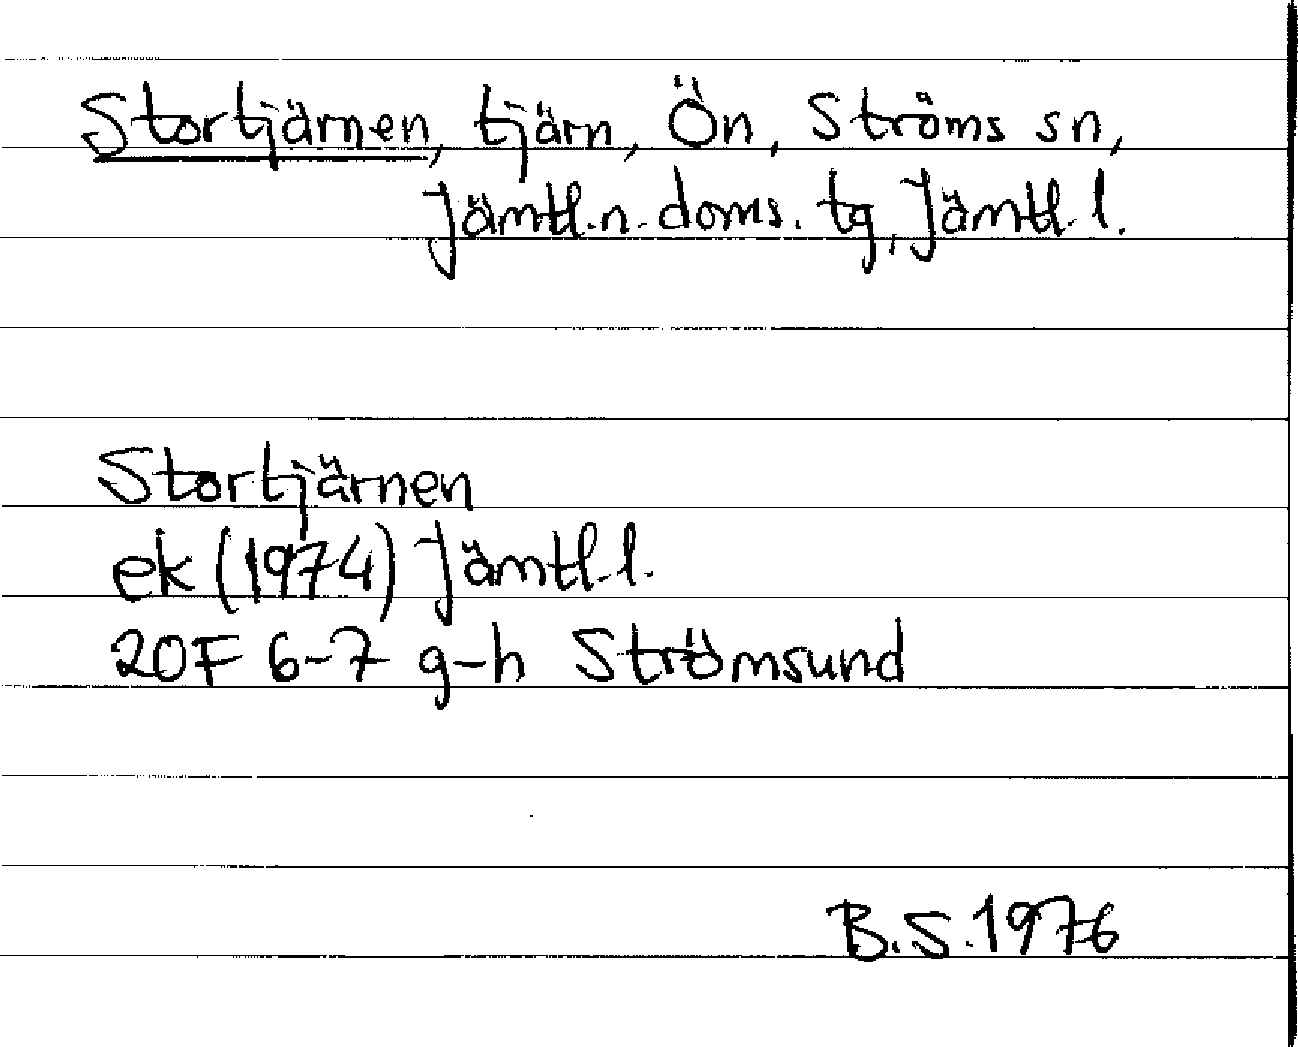 Stortjärnen, tjärn, Ön, Ströms sn,
Jämtl.n. doms. tg, Jämtl. l.
Stortjärnen
ek (1974) Jämtl. l.
20F 6-7 g-h Strömsund
B.S. 1976